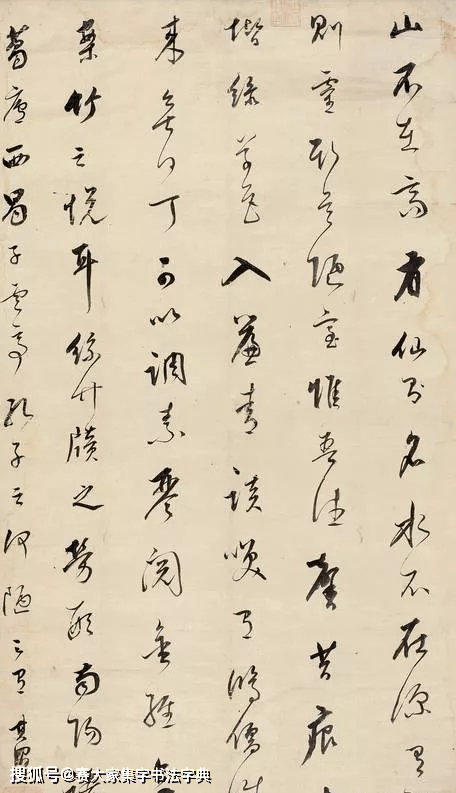 山不在高有仙則名水不在深有
則靈斯是陋室惟吾德馨苔痕
堦綠草色入簾青談笑有鴻儒往
来無白丁可以調素琴閱金經
竹之悅耳絲牘之勞形南陽諸
葛廬西蜀子雲亭孔子云何陋之有 其昌
搜狐号@赛大家集字书法字典